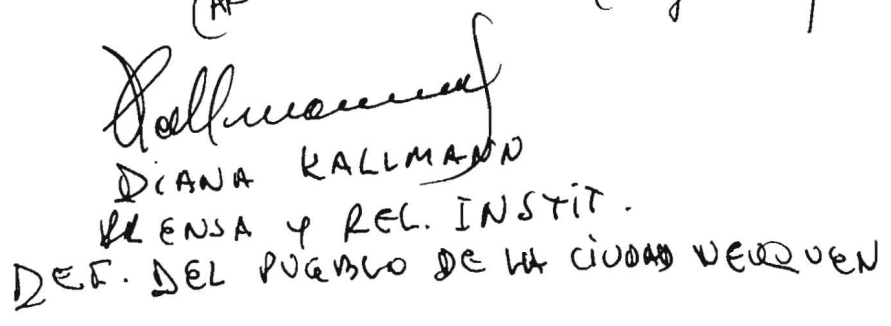 Kallmann
DIANA KALLMANN
PRENSA Y REL. INSTIT.
DEF. DEL PUEBLO DE LA CIUDAD NEUQUEN